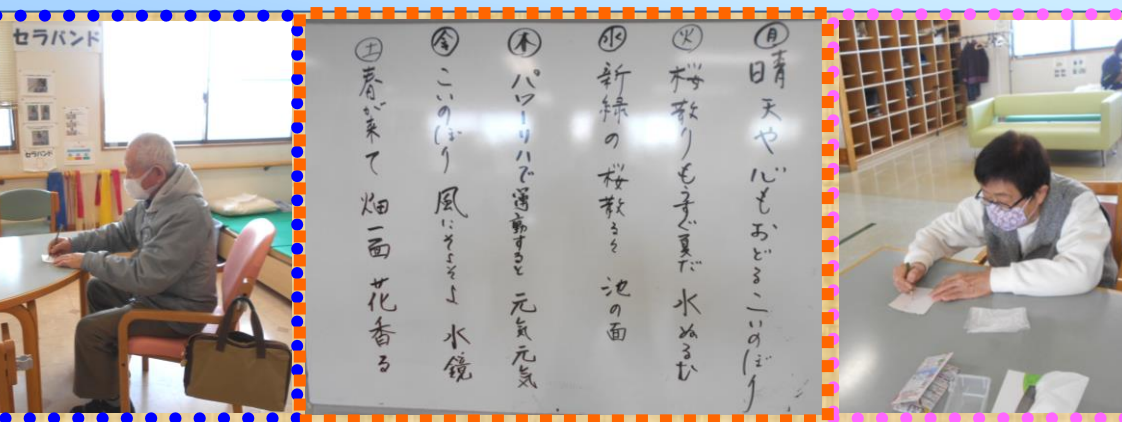 セラバンド
セラバンド
月 晴天や 心もおどる こいのぼり
火 桜散り もうすぐ夏だ 水ぬるむ
水 新緑の 桜散ると 池の面
木 パワーリハで 運動すると 元気元気
金 こいのぼり 風にそよそよ 水鏡
土 春が来て 畑一面 花香る